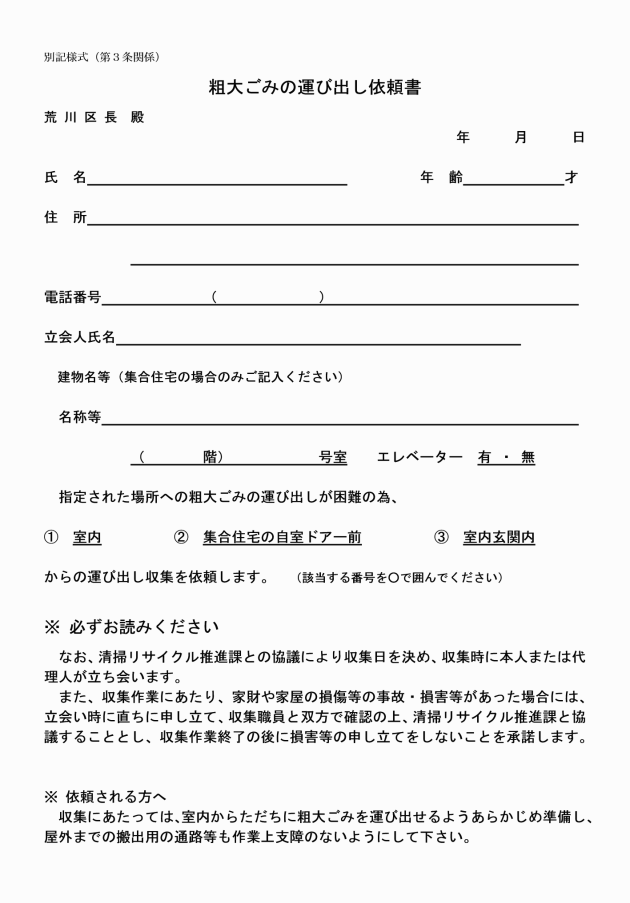 別記様式（第３条関係）
粗大ごみの運び出し依頼書
荒 川 区 長　殿
年　　　月　　　日
氏　名　　　　　　　　年　齢　　　　　才
住　所
電話番号　　　　　（　　　　　　　）
立会人氏名
建物名等（集合住宅の場合のみご記入ください）
名称等
（　　　　階）　　　　　　号室　　エレベーター　有 ・ 無
指定された場所への粗大ごみの運び出しが困難の為、
①　室内　　　　　②　集合住宅の自室ドアー前　　　　　③　室内玄関内
からの運び出し収集を依頼します。　（該当する番号を〇で囲んでください）
※ 必ずお読みください
なお、清掃リサイクル推進課との協議により収集日を決め、収集時に本人または代
理人が立ち会います。
また、収集作業にあたり、家財や家屋の損傷等の事故・損害等があった場合には、
立会い時に直ちに申し立て、収集職員と双方で確認の上、清掃リサイクル推進課と協
議することとし、収集作業終了の後に損害等の申し立てをしないことを承諾します。
※ 依頼される方へ
収集にあたっては、室内からただちに粗大ごみを運び出せるようあらかじめ準備し、
屋外までの搬出用の通路等も作業上支障のないようにして下さい。